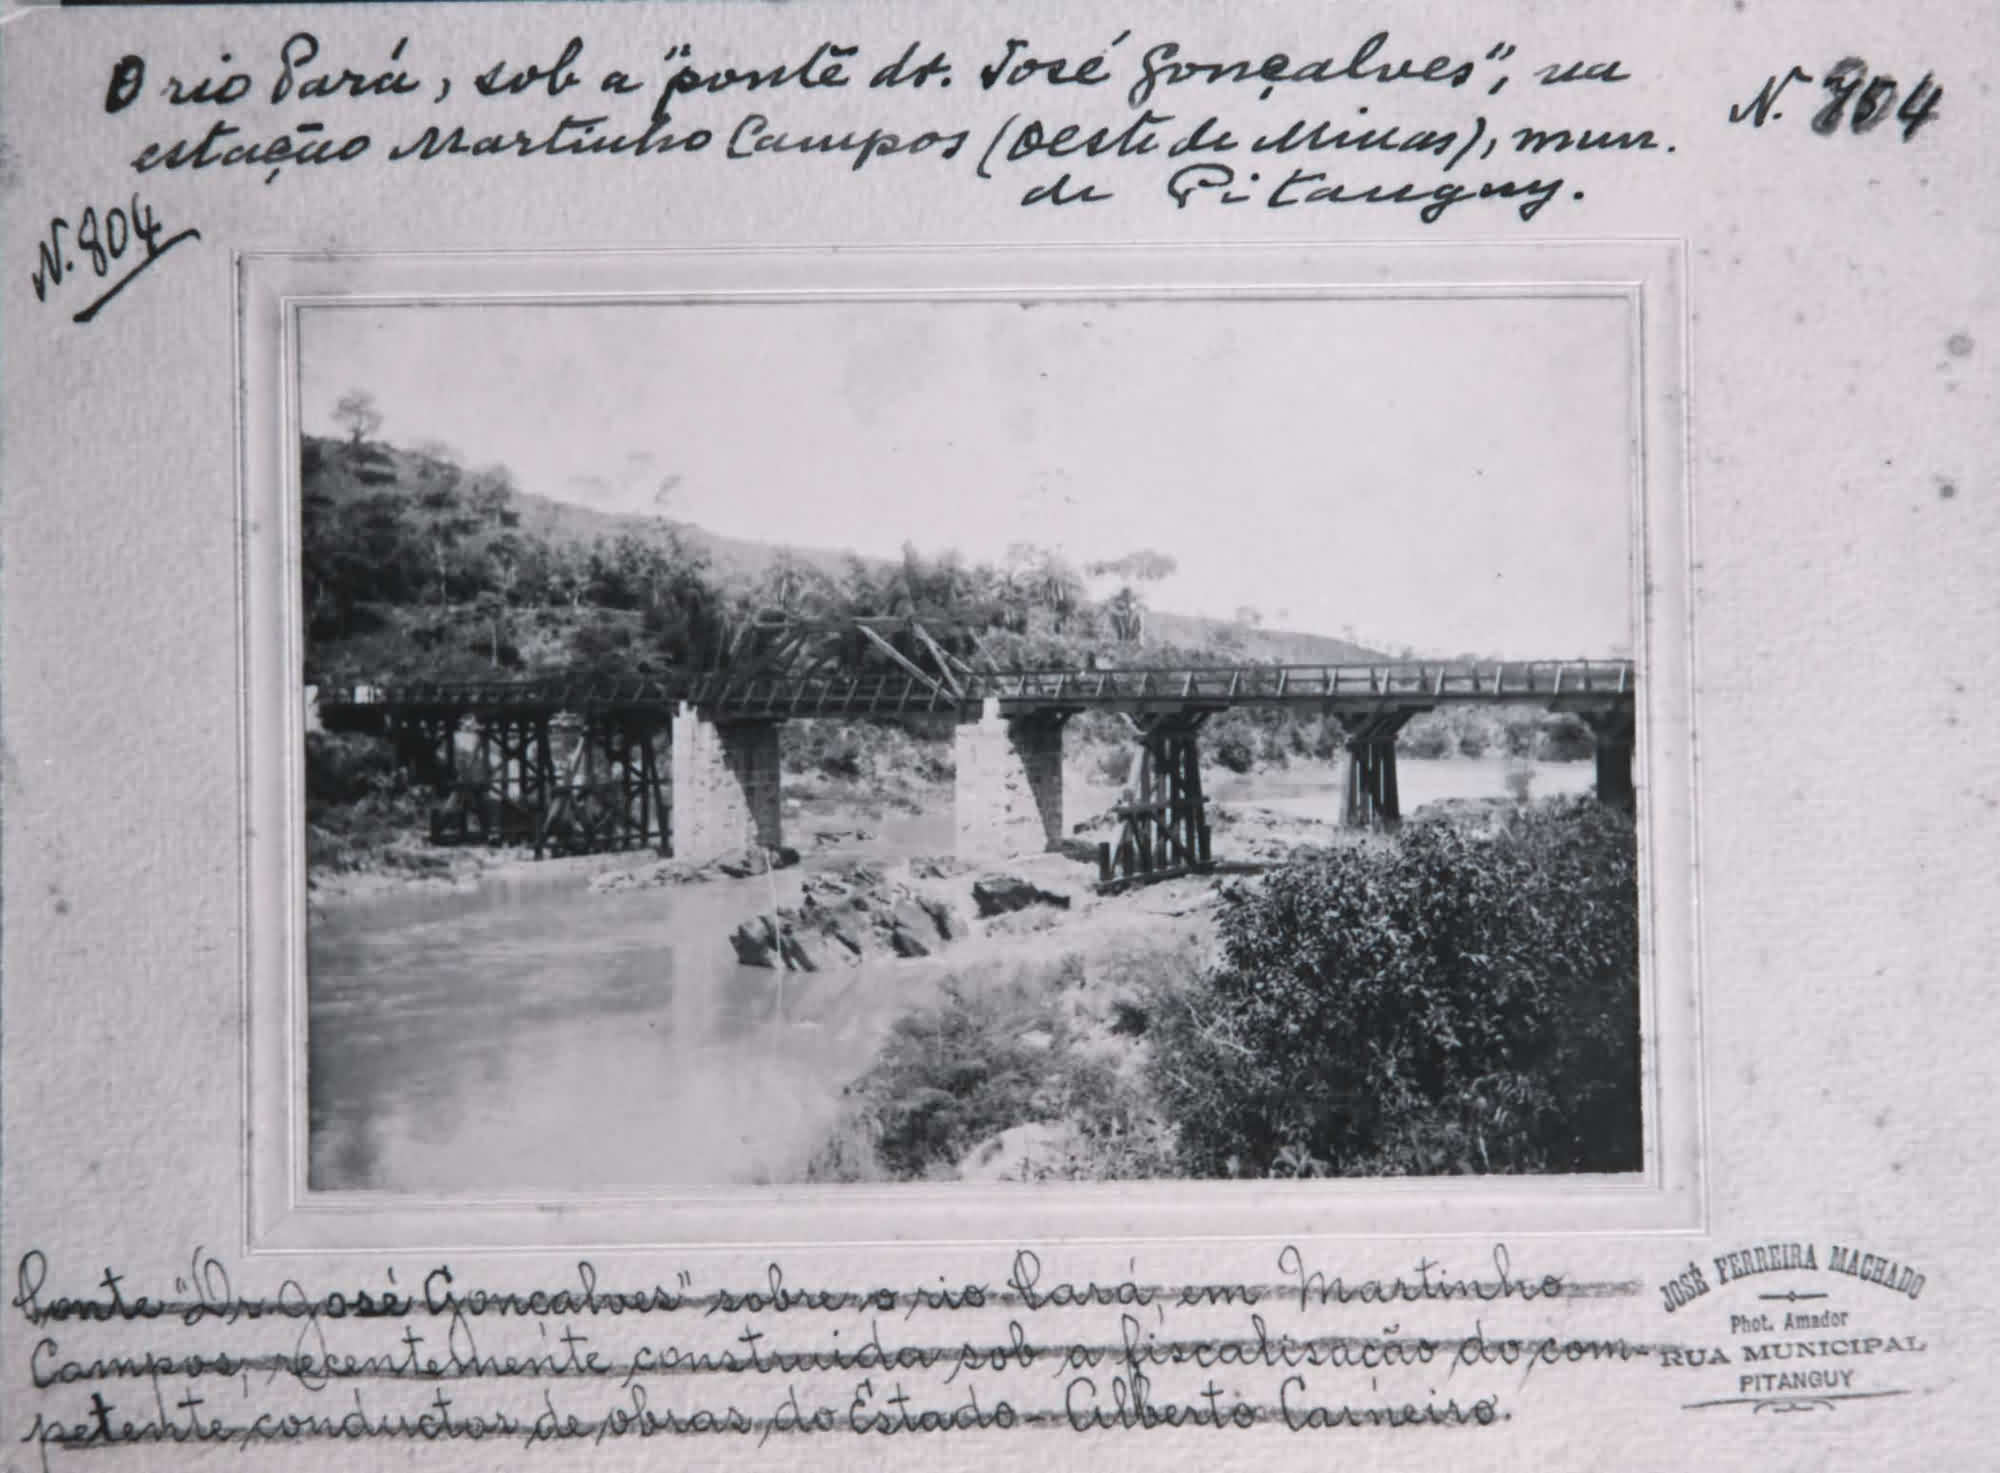 O rio Pará, sob a "ponte dr. José Gonçalves", na
estação Martinho Campos (Oeste de Minas), mun.
de Pitanguy.
N. 804
N. 804
Ponte "Dr José Gonçalves" sobre o rio Pará, em Martinho
Campos, recentemente construida sob a fiscalisação do com-
petente conductor de obras do Estado - Alberto Carneiro.
JOSÉ FERREIRA MACHADO
Phot. Amador
RUA MUNICIPAL
PITANGUY